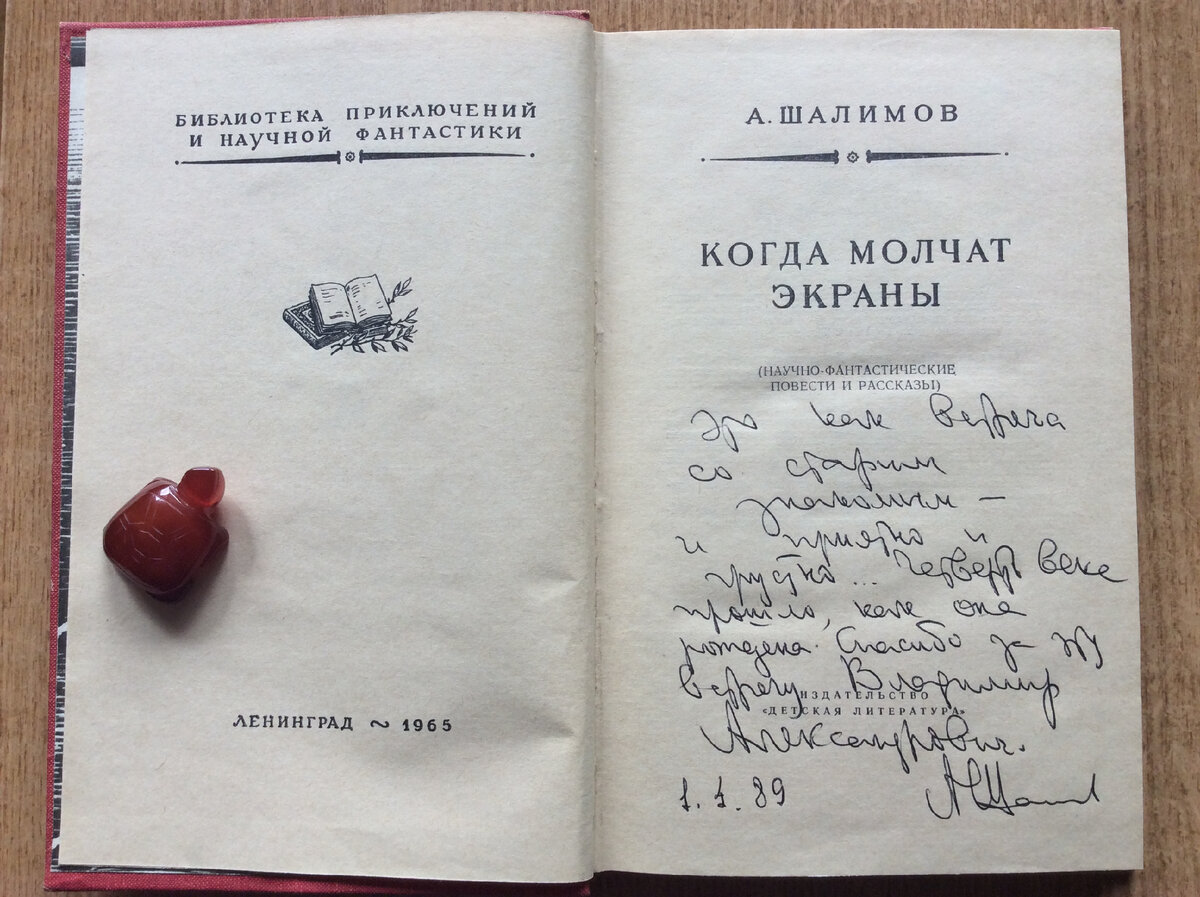 БИБЛИОТЕКА ПРИКЛЮЧЕНИЙ
И НАУЧНОЙ ФАНТАСТИКИ
ЛЕНИНГРАД ~ 1965
А. ШАЛИМОВ
КОГДА МОЛЧАТ
ЭКРАНЫ
(НАУЧНО-ФАНТАСТИЧЕСКИЕ
ПОВЕСТИ И РАССКАЗЫ)
Это как встреча
со старым
знакомым —
и приятно и
грустно... Четверть века
прошло, как она
рождена. Спасибо за эту
встречу Владимир
ИЗДАТЕЛЬСТВО
«ДЕТСКАЯ ЛИТЕРАТУРА»
Александрович.
1.1.89